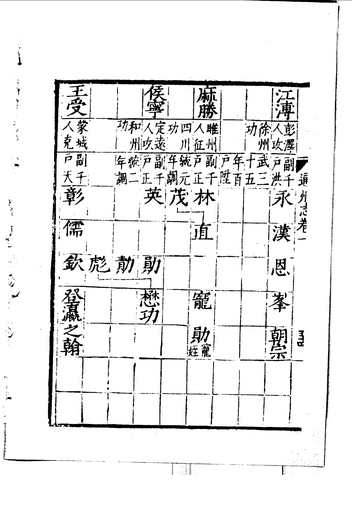 志卷一
江溥 彭澤人攻徐州功 副千戶洪武三十五年百戶陞 永 漢 恩 峯 朝宗
麻勝 睢州人征四川功 副千戶正統元年調 林 直 寵 勛 寵姪
茂
侯寧 定遠人攻和州功 副千戶正統二年調 英 勛 懋功
勛
彪
王受 蒙城人克 副千戶天 彰 儒 欽 登瀛 之翰